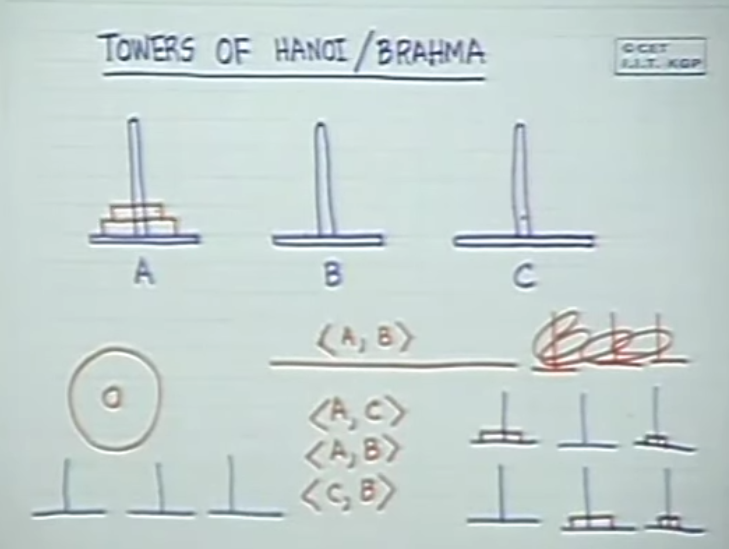 TOWERS OF HANOI/BRAHMA
CCET
I.I.T. KGP
A
B
C
<A, B>
<A, C>
<A, B>
<C, B>